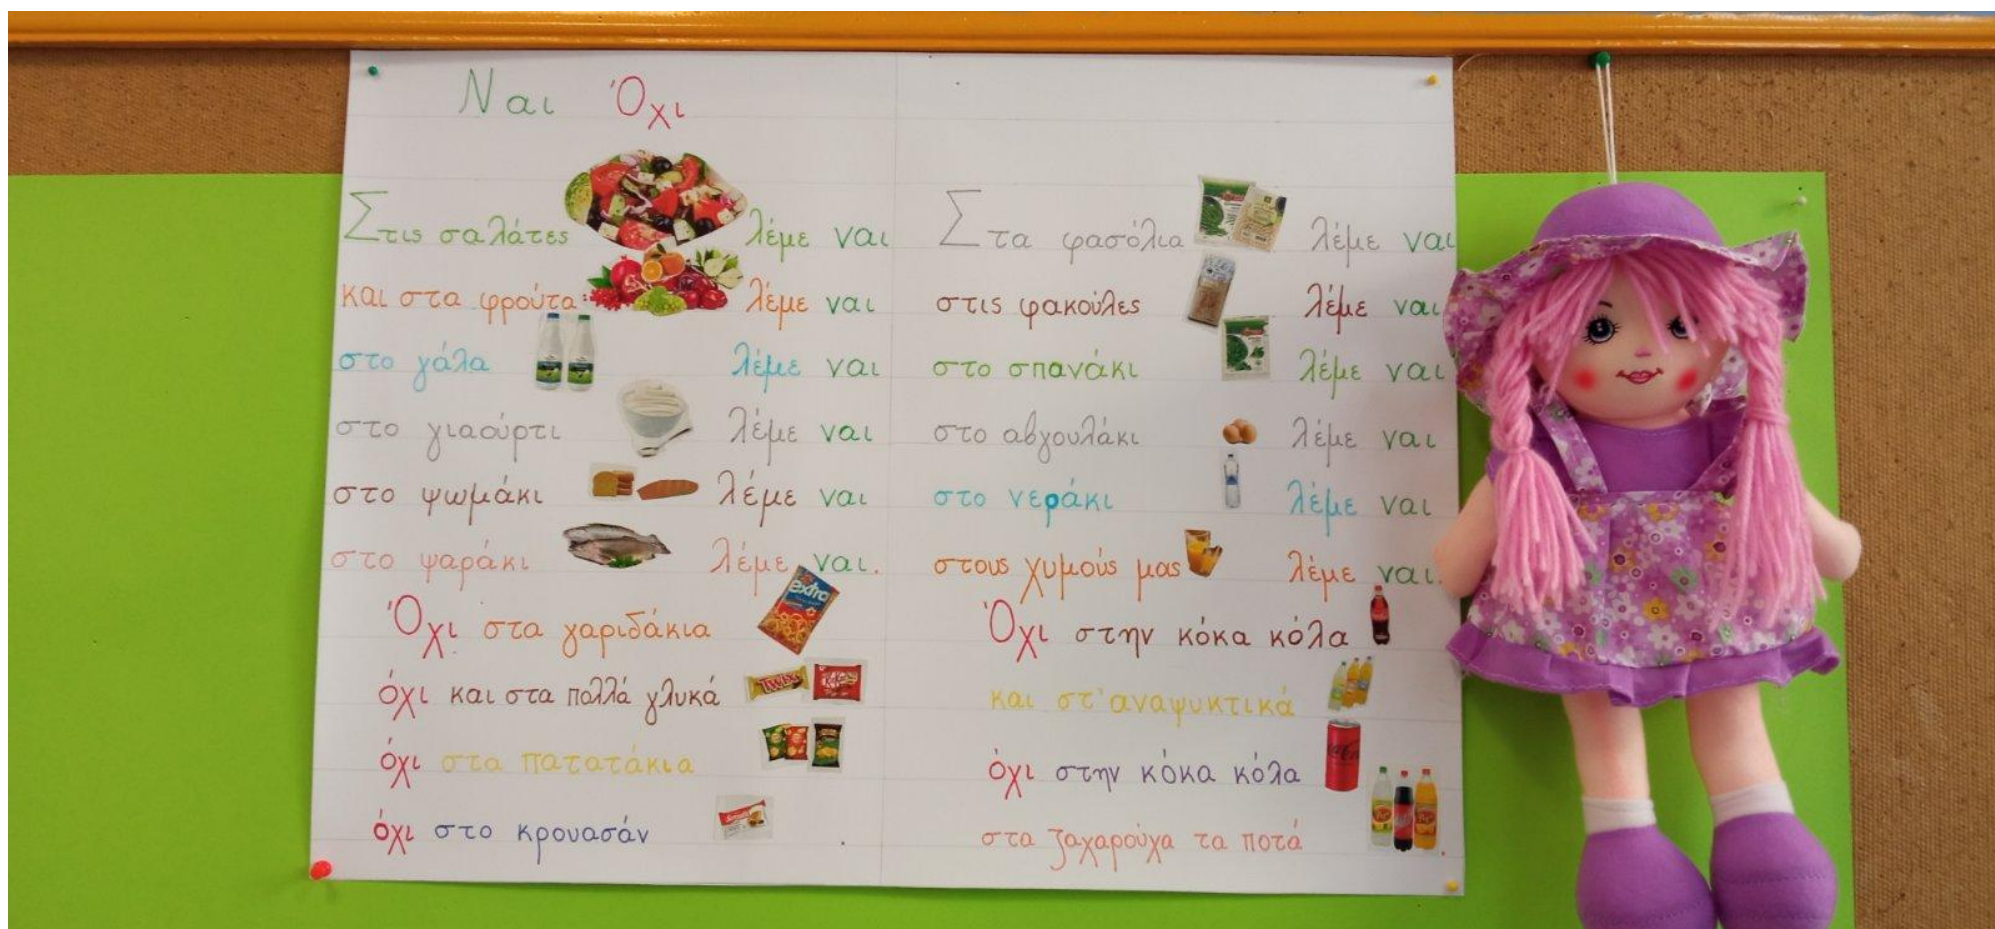 Ναι Όχι
Στις σαλάτες λέμε ναι
και στα φρούτα λέμε ναι
στο γάλα λέμε ναι
στο γιαούρτι λέμε ναι
στο ψωμάκι λέμε ναι
στο ψαράκι λέμε ναι.
Όχι στα γαριδάκια
extra
όχι και στα πολλά γλυκά
TWIX KitKat
όχι στα πατατάκια
όχι στο κρουασάν
Στα φασόλια λέμε ναι
στις φακούλες λέμε ναι
στο σπανάκι λέμε ναι
στο αβγουλάκι λέμε ναι
στο νεράκι λέμε ναι
στους χυμούς μας λέμε ναι.
Όχι στην κόκα κόλα
και στ' αναψυκτικά
όχι στην κόκα κόλα
στα ζαχαρούχα τα ποτά.